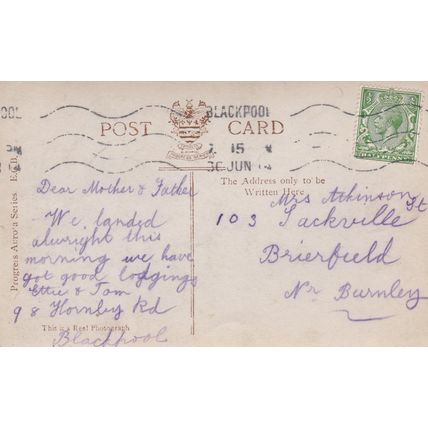 OOL
BLACKPOOL
7 15
30 JUN 14
POST CARD
HALFPENNY
The Address only to be
Written Here
Progress Auro'a Series E.L.D.
Dear Mother & Father
We landed
alwright this
morning we have
got good lodgings
Ettie & Tom
98 Hornby Rd
This is a Real Photograph
Blackpool
Mrs Atkinson
103 Sackville St
Brierfield
Nr Burnley